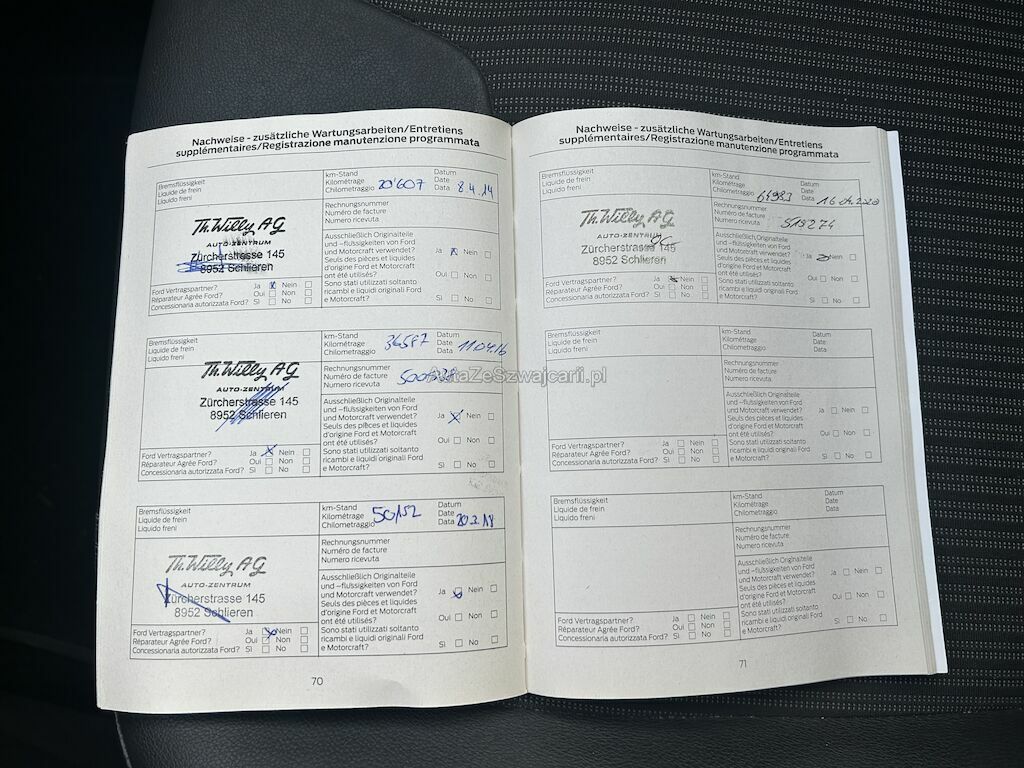 Nachweise - zusätzliche Wartungsarbeiten/Entretiens
supplémentaires/Registrazione manutenzione programmata
Bremsflüssigkeit
Liquide de frein
Liquido freni
km-Stand
Kilométrage
Chilometraggio
20'607
Datum
Date
Data
8 4. 14
Th. Willy AG
AUTO-ZENTRUM
Zürcherstrasse 145
8952 Schlieren
Rechnungsnummer
Numéro de facture
Numero ricevuta
Ausschließlich Originalteile
und –flüssigkeiten von Ford
und Motorcraft verwendet?
Seuls des pièces et liquides
d'origine Ford et Motorcraft
ont été utilisés?
Sono stati utilizzati soltanto
ricambi e liquidi originali Ford
e Motorcraft?
Ja Nein
Oui Non
Sì No
Ford Vertragspartner? Ja Nein
Réparateur Agrée Ford? Oui Non
Concessionaria autorizzata Ford? Sì No
Bremsflüssigkeit
Liquide de frein
Liquido freni
km-Stand
Kilométrage
Chilometraggio
36587
Datum
Date
Data
11.04.16
Th. Willy AG
AUTO-ZENTRUM
Zürcherstrasse 145
8952 Schlieren
Rechnungsnummer
Numéro de facture
Numero ricevuta
Ausschließlich Originalteile
und –flüssigkeiten von Ford
und Motorcraft verwendet?
Seuls des pièces et liquides
d'origine Ford et Motorcraft
ont été utilisés?
Sono stati utilizzati soltanto
ricambi e liquidi originali Ford
e Motorcraft?
Ja Nein
Oui Non
Sì No
Ford Vertragspartner? Ja Nein
Réparateur Agrée Ford? Oui Non
Concessionaria autorizzata Ford? Sì No
Bremsflüssigkeit
Liquide de frein
Liquido freni
km-Stand
Kilométrage
Chilometraggio
50152
Datum
Date
Data
20.2.18
Th. Willy AG
AUTO-ZENTRUM
Zürcherstrasse 145
8952 Schlieren
Rechnungsnummer
Numéro de facture
Numero ricevuta
Ausschließlich Originalteile
und –flüssigkeiten von Ford
und Motorcraft verwendet?
Seuls des pièces et liquides
d'origine Ford et Motorcraft
ont été utilisés?
Sono stati utilizzati soltanto
ricambi e liquidi originali Ford
e Motorcraft?
Ja Nein
Oui Non
Sì No
Ford Vertragspartner? Ja Nein
Réparateur Agrée Ford? Oui Non
Concessionaria autorizzata Ford? Sì No
70
Nachweise - zusätzliche Wartungsarbeiten/Entretiens
supplémentaires/Registrazione manutenzione programmata
Bremsflüssigkeit
Liquide de frein
Liquido freni
km-Stand
Kilométrage
Chilometraggio
64983
Datum
Date
Data
16.04.2020
Th. Willy AG
AUTO-ZENTRUM
Zürcherstrasse 145
8952 Schlieren
Rechnungsnummer
Numéro de facture
Numero ricevuta
519274
Ausschließlich Originalteile
und –flüssigkeiten von Ford
und Motorcraft verwendet?
Seuls des pièces et liquides
d'origine Ford et Motorcraft
ont été utilisés?
Sono stati utilizzati soltanto
ricambi e liquidi originali Ford
e Motorcraft?
Ja Nein
Oui Non
Sì No
Ford Vertragspartner? Ja Nein
Réparateur Agrée Ford? Oui Non
Concessionaria autorizzata Ford? Sì No
Bremsflüssigkeit
Liquide de frein
Liquido freni
km-Stand
Kilométrage
Chilometraggio
Datum
Date
Data
Rechnungsnummer
Numéro de facture
Numero ricevuta
Ausschließlich Originalteile
und –flüssigkeiten von Ford
und Motorcraft verwendet?
Seuls des pièces et liquides
d'origine Ford et Motorcraft
ont été utilisés?
Sono stati utilizzati soltanto
ricambi e liquidi originali Ford
e Motorcraft?
Ja Nein
Oui Non
Sì No
Ford Vertragspartner? Ja Nein
Réparateur Agrée Ford? Oui Non
Concessionaria autorizzata Ford? Sì No
Bremsflüssigkeit
Liquide de frein
Liquido freni
km-Stand
Kilométrage
Chilometraggio
Datum
Date
Data
Rechnungsnummer
Numéro de facture
Numero ricevuta
Ausschließlich Originalteile
und –flüssigkeiten von Ford
und Motorcraft verwendet?
Seuls des pièces et liquides
d'origine Ford et Motorcraft
ont été utilisés?
Sono stati utilizzati soltanto
ricambi e liquidi originali Ford
e Motorcraft?
Ja Nein
Oui Non
Sì No
Ford Vertragspartner? Ja Nein
Réparateur Agrée Ford? Oui Non
Concessionaria autorizzata Ford? Sì No
71
AutaZeSzwajcarii.pl